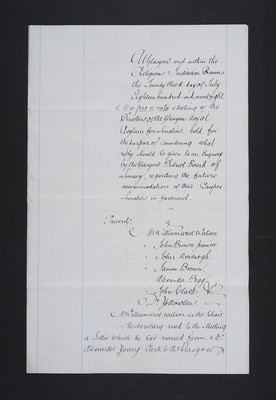 At Glasgow and within the
Religious Institution Rooms
the Twenty third day of July
Eighteen hundred and ninety eight,
At a pro re nata Meeting of the
Directors of the Glasgow Royal
Asylum for Lunatics held for
the purpose of considering what
reply should be given to an Enquiry
by the Glasgow District Board of
Lunacy, regarding the future
accommodation of their Pauper
Lunatics in Gartnavel.
Present,
Mr William West Watson
" John Brown junior
" John Roxburgh
" James Brown,
Alexander Pegg
" John Clark, &
Dr Yellowlees.
Mr William West Watson in the Chair.
The Secretary read to the Meeting
a Letter which he had received from Mr
Alexander Young Clerk to the Glasgow